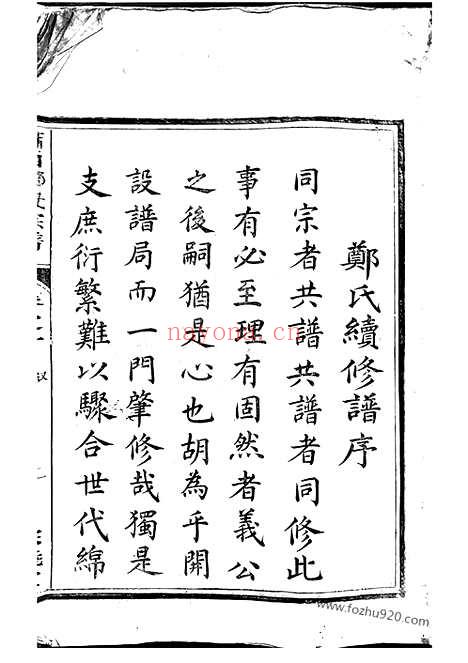 鄭氏續修譜序
同宗者共譜共譜者同修此
事有必至理有固然者義公
之後嗣猶是心也胡為乎開
設譜局而一門肇修哉獨是
支庶衍繁難以驟合世代綿
nayona.cn
www.fozhu920.com